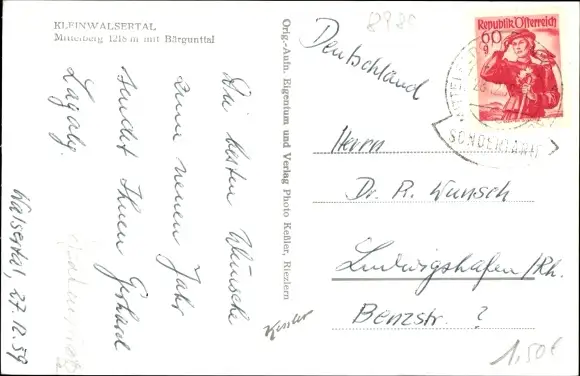 KLEINWALSERTAL
Mittelberg 1218 m mit Bärgunttal
Walsertal, 27.12.59
Die besten Wünsche
zum neuen Jahr
sendet Ihnen Gerhard
Orig.-Aufn. Eigentum und Verlag Photo Keßler, Riezlern
Kessler
Deutschland
Republik Österreich
60
g
SONDERTARIF
Herrn
Dr. R. Wunsch
Ludwigshafen/Rh.
Benzstr. ?
1,50€